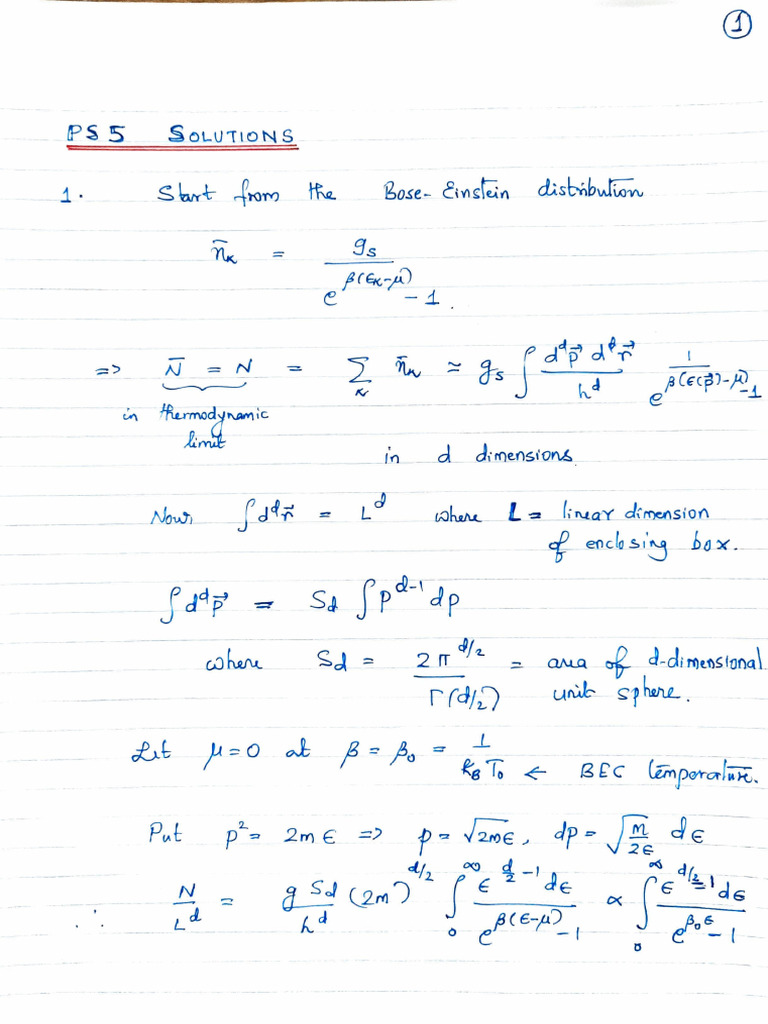 ①
PS5 SOLUTIONS
1. Start from the Bose-Einstein distribution
n̄_κ = g_s / (e^{β(ϵ_κ-μ)} - 1).
=> N̄ = N = Σ_κ n̄_κ ≃ g_s ∫ (d^d p⃗ d^d r⃗ / h^d) 1 / (e^{β(ϵ(p⃗)-μ)} - 1)
in thermodynamic
limit
in d dimensions.
Now, ∫ d^d r⃗ = L^d where L = linear dimension
of enclosing box.
∫ d^d p⃗ = S_d ∫ p^{d-1} dp
where S_d = 2π^{d/2} / Γ(d/2) = area of d-dimensional
unit sphere.
Let μ = 0 at β = β_0 = 1 / (k_B T_0) ← BEC temperature.
Put p² = 2mϵ => p = √(2mϵ), dp = √(m/2ϵ) dϵ
∴ N / L^d = (g S_d / h^d) (2m)^{d/2} ∫_0^∞ ϵ^{d/2 - 1} dϵ / (e^{β(ϵ-μ)} - 1) ∝ ∫_0^∞ ϵ^{d/2 - 1} dϵ / (e^{β_0 ϵ} - 1)